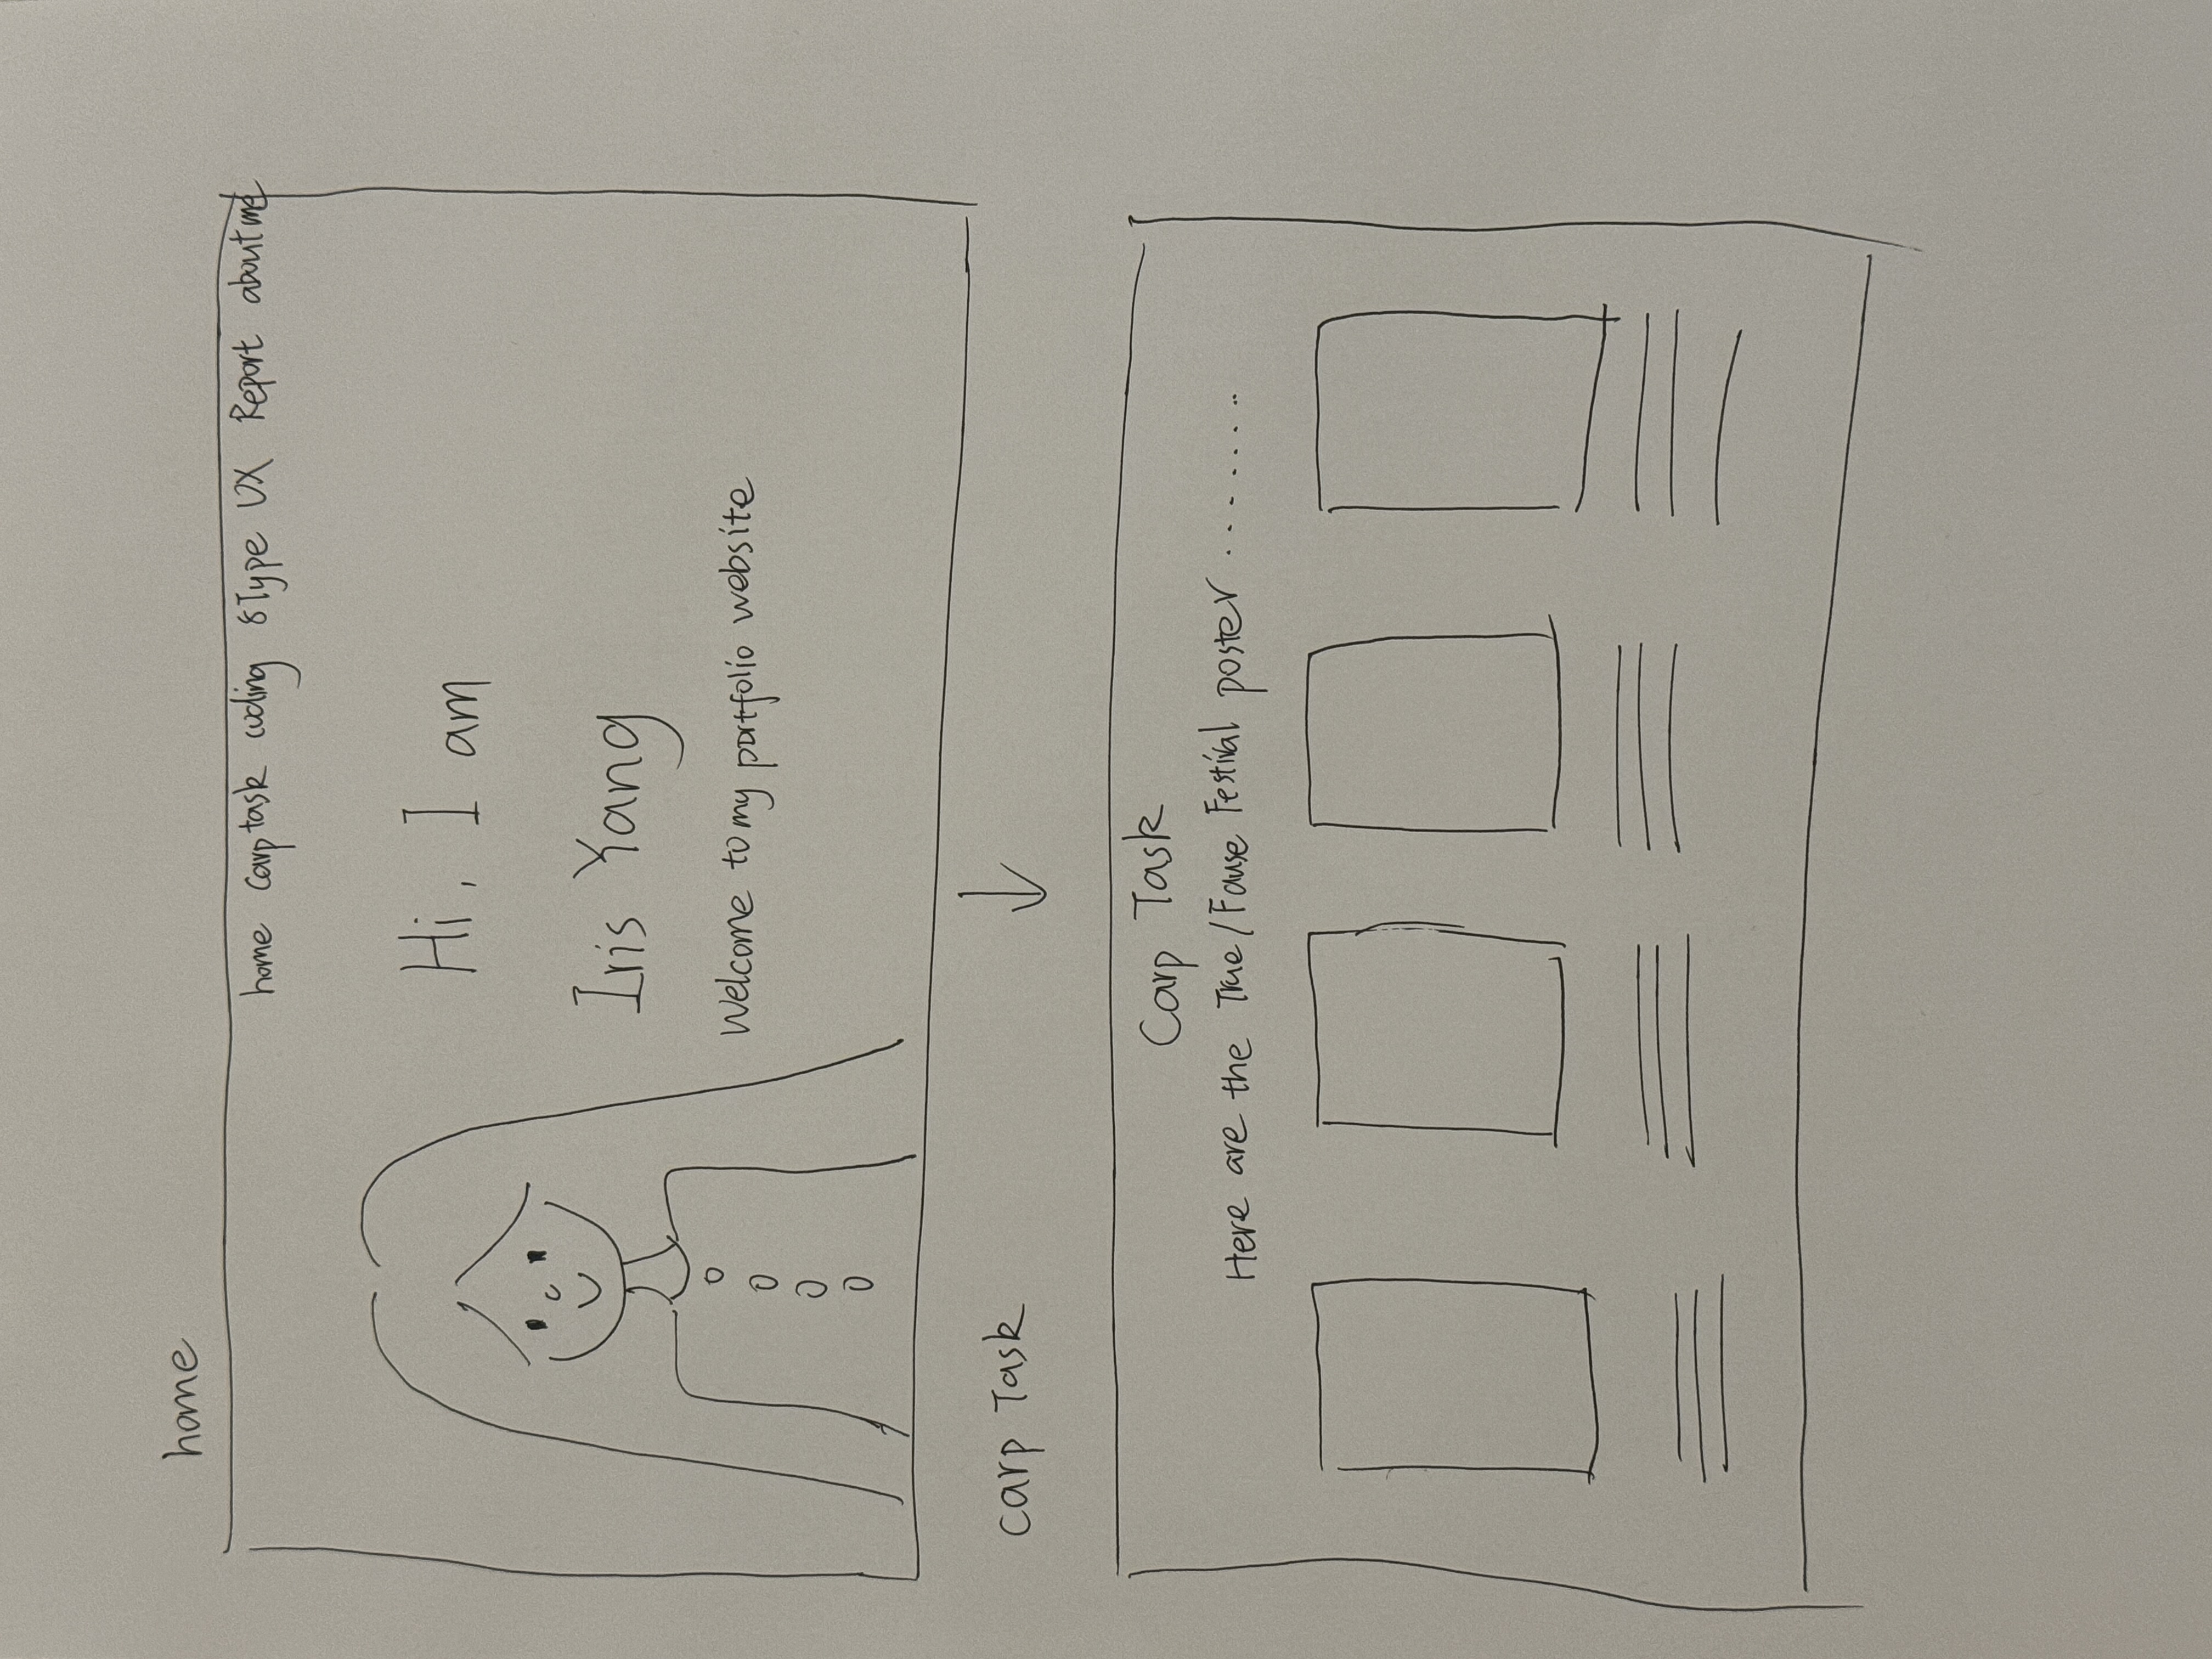 home
home Carp task coding 8Type UX Report about me
Hi, I am
Iris Yang
Welcome to my portfolio website
Carp Task
Carp Task
Here are the True/Fause Festival poster ........